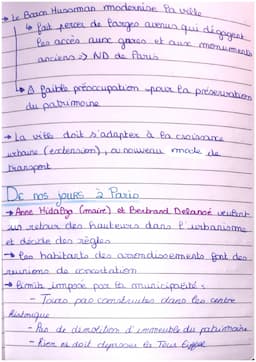 → Le Baron Hussman modernise la ville
↳ fait percer de larges avenues qui dégagent
les accès aux gares et aux monuments
anciens => ND de Paris
↳ A faible préoccupation pour la préservation
du patrimoine
→ La ville doit s'adapter à la croissance
urbaine (extension), au nouveau mode de
transport
De nos jours à Paris
→ Anne Hidalgo (maire) et Bertrand Delanoé veulent
un retour des hauteurs dans l'urbanisme
et décide des règles
→ Les habitants des arrondissements font des
réunions de concertation
→ limits imposé par la municipalité :
- Tours pas construites dans les centre
historique
- Pas de démolition d'immeuble du patrimoine
- Rien ne doit dépasser la Tour Eiffel